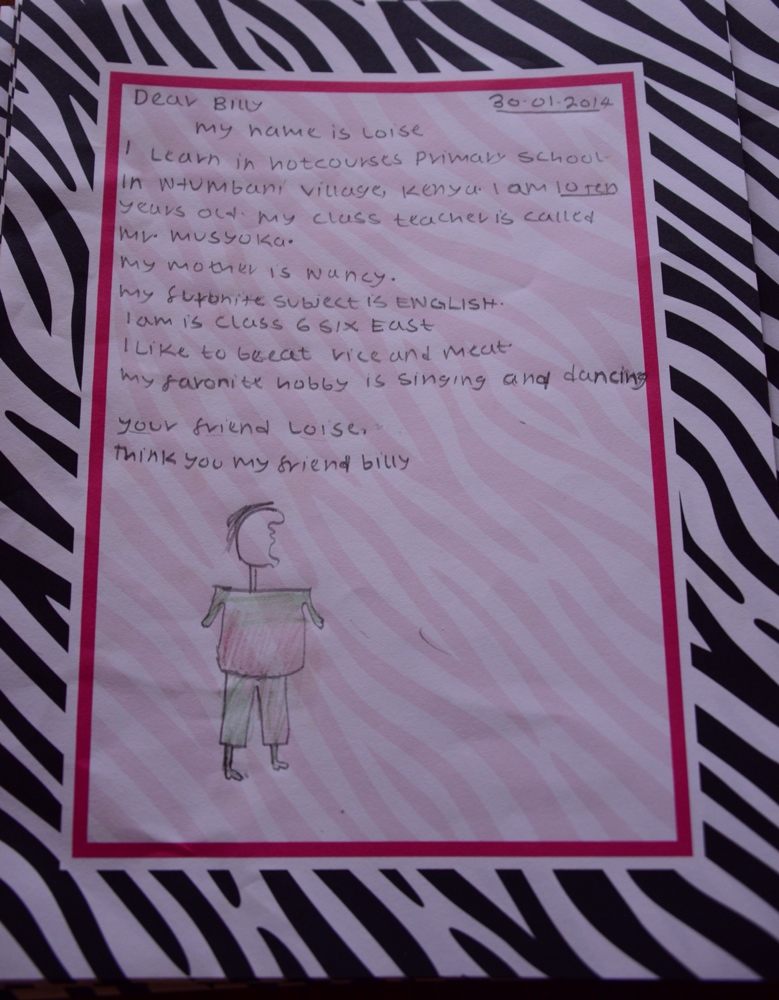 Dear Billy 30-01-2014
my name is Loise
I Learn in hotcourses Primary school.
in Ntumbani village, Kenya. I am 10 ten
years old. my class teacher is called
Mr. Musyoka.
my mother is Nancy.
my favonite subject is ENGLISH.
I am is class 6 six East
I Like to eat rice and meat.
my favonite hobby is singing and dancing
your friend Loise.
think you my friend billy